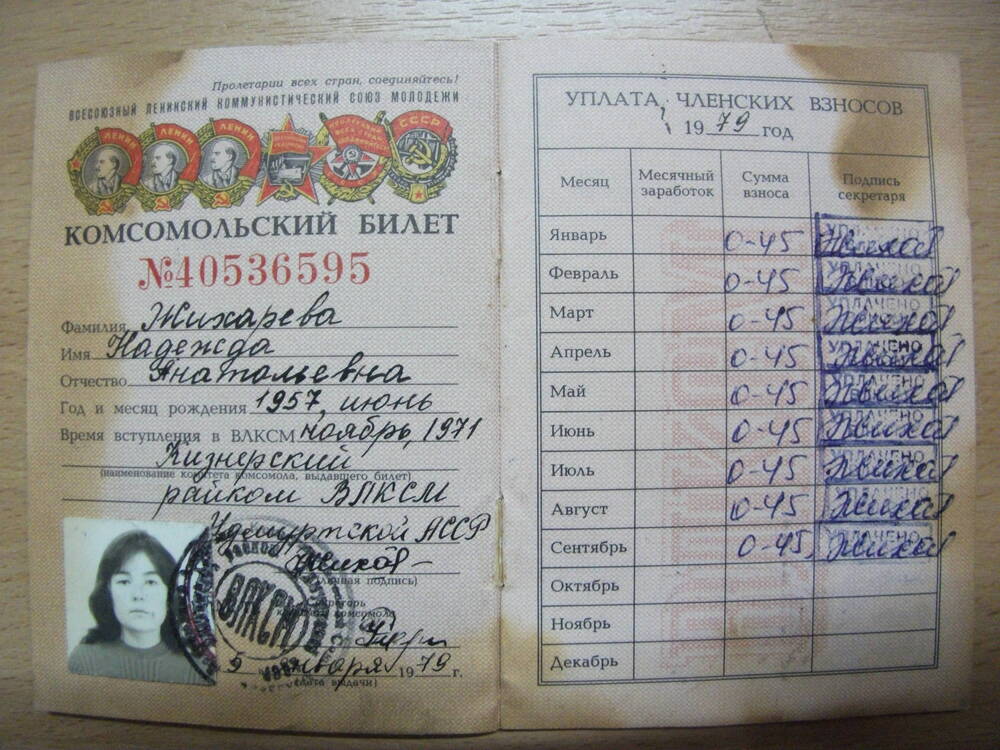 Пролетарии всех стран, соединяйтесь!
ВСЕСОЮЗНЫЙ ЛЕНИНСКИЙ КОММУНИСТИЧЕСКИЙ СОЮЗ МОЛОДЕЖИ
ЛЕНИН ЛЕНИН ЛЕНИН СССР
КОМСОМОЛЬСКИЙ БИЛЕТ
№40536595
Фамилия Жихарева
Имя Надежда
Отчество Анатольевна
Год и месяц рождения 1957, июнь
Время вступления в ВЛКСМ ноябрь, 1971
Кизнерский
(наименование комитета комсомола, выдавшего билет)
райком ВЛКСМ
Удмуртской АССР
(личная подпись)
Секретарь
комитета комсомола
ВЛКСМ
5 января 1979 г.
(дата выдачи)
УПЛАТА ЧЛЕНСКИХ ВЗНОСОВ
1979 год
Месяц Месячный заработок Сумма взноса Подпись секретаря
Январь 0-45 УПЛАЧЕНО
Февраль 0-45 УПЛАЧЕНО
Март 0-45 УПЛАЧЕНО
Апрель 0-45 УПЛАЧЕНО
Май 0-45 УПЛАЧЕНО
Июнь 0-45 УПЛАЧЕНО
Июль 0-45 УПЛАЧЕНО
Август 0-45 УПЛАЧЕНО
Сентябрь 0-45 УПЛАЧЕНО
Октябрь
Ноябрь
Декабрь